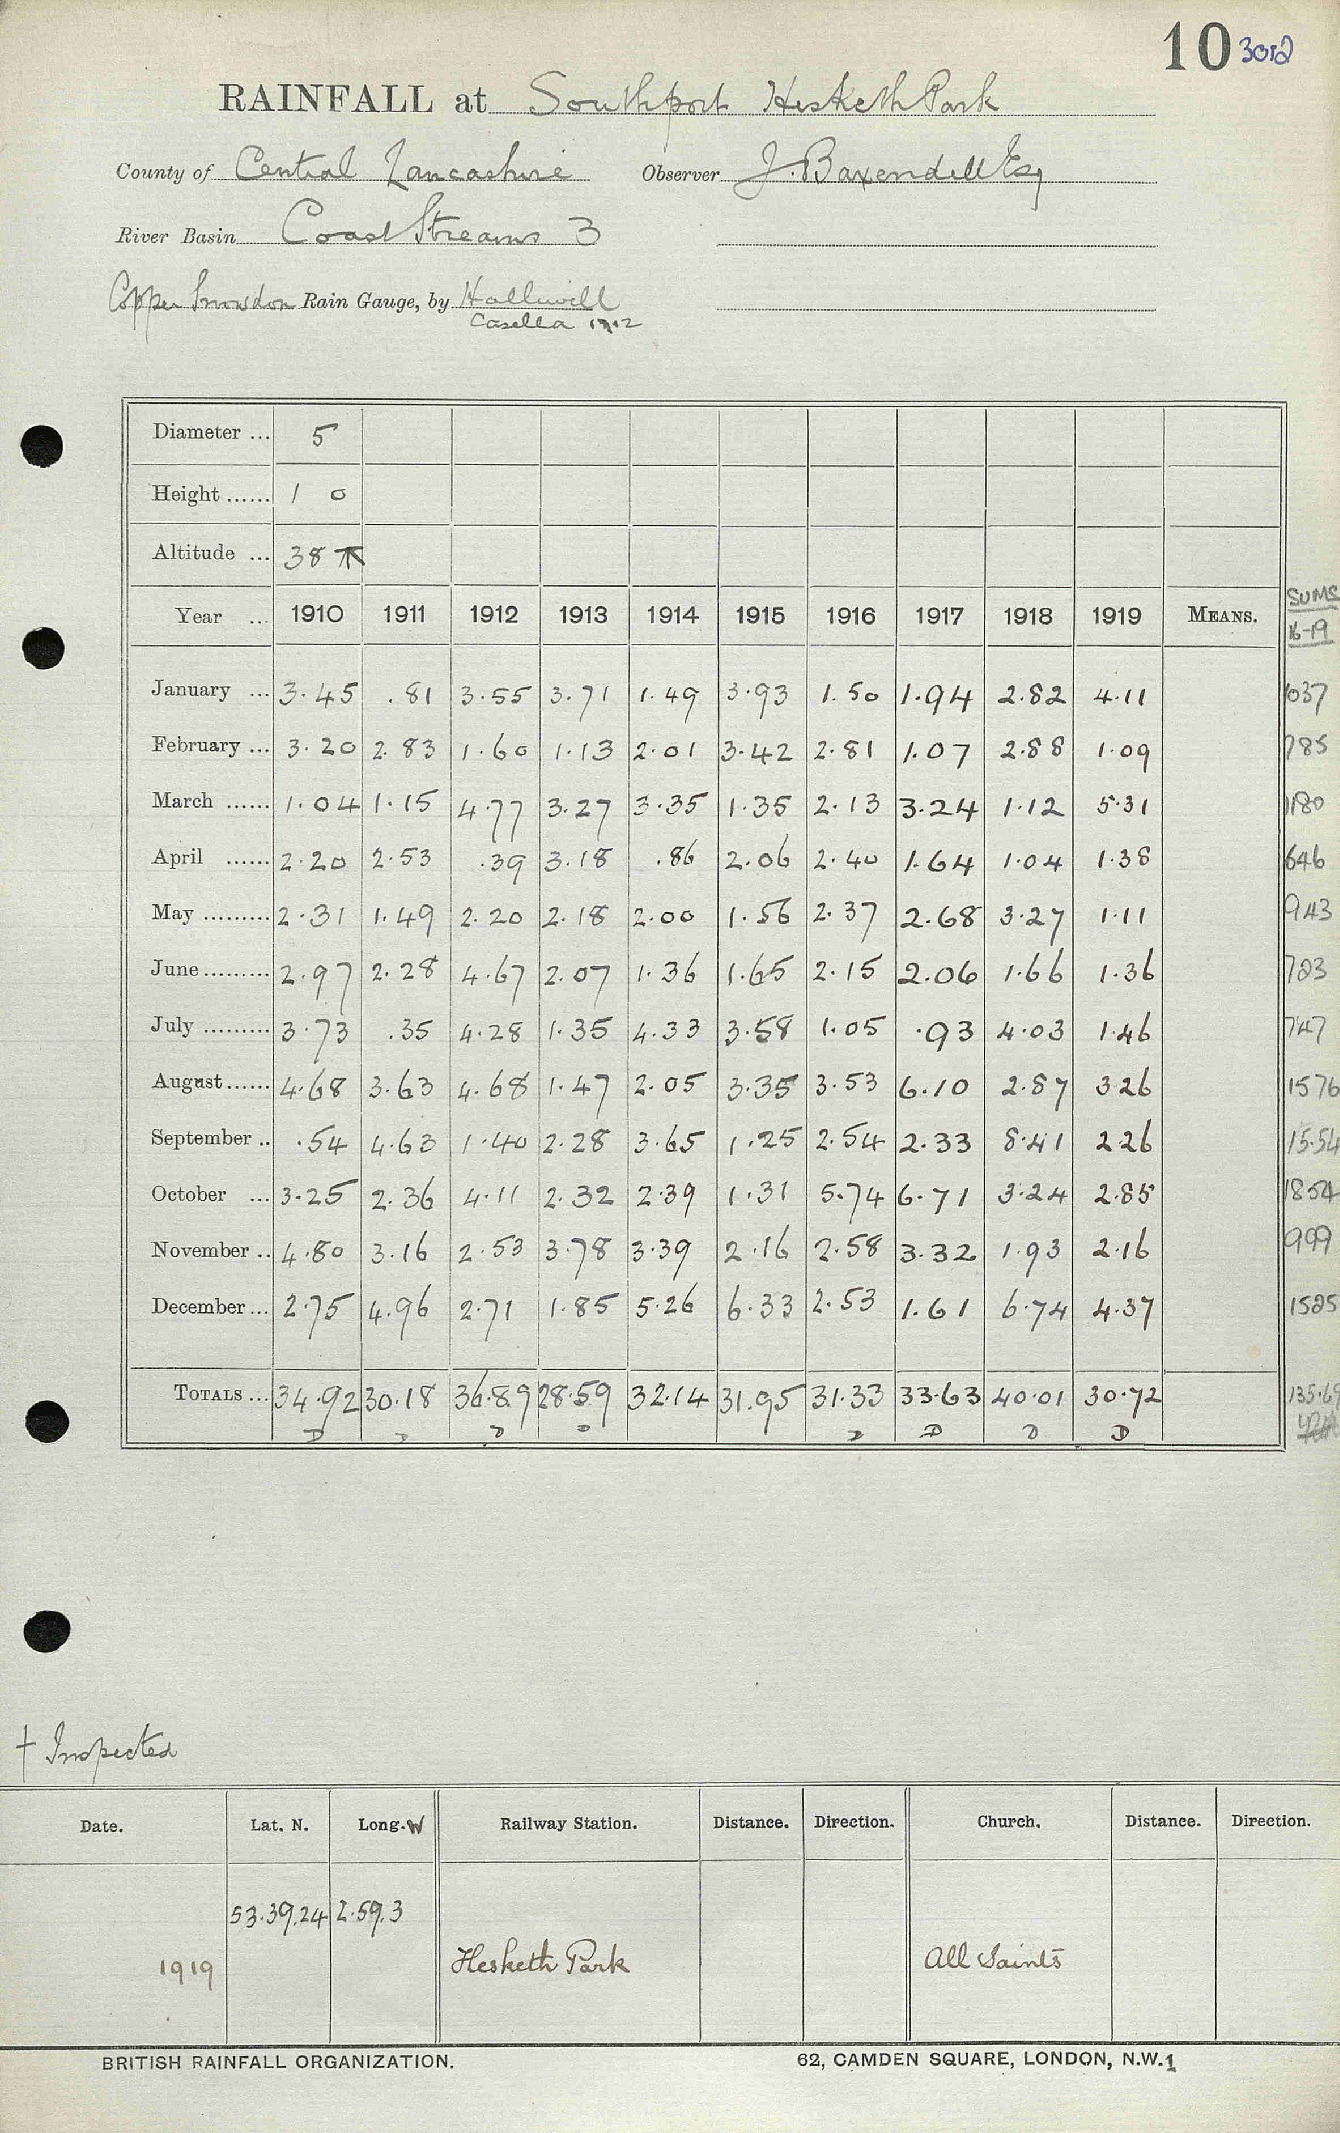 10 3012
RAINFALL at Southport Hesketh Park
County of Central Lancashire Observer J. Baxendell Esq
River Basin Coast Streams 3
Copper Snowdon Rain Gauge, by Halliwell
Casella 1912
Diameter ... 5
Height ...... 1 0
Altitude ... 38
SUMS
Year ... 1910 1911 1912 1913 1914 1915 1916 1917 1918 1919 MEANS. 16-19
January ... 3.45 .81 3.55 3.71 1.49 3.93 1.50 1.94 2.82 4.11 1037
February ... 3.20 2.83 1.60 1.13 2.01 3.42 2.81 1.07 2.88 1.09 785
March ...... 1.04 1.15 4.77 3.27 3.35 1.35 2.13 3.24 1.12 5.31 1180
April ...... 2.20 2.53 .39 3.18 .86 2.06 2.40 1.64 1.04 1.38 646
May ......... 2.31 1.49 2.20 2.18 2.00 1.56 2.37 2.68 3.27 1.11 943
June ......... 2.97 2.28 4.67 2.07 1.36 1.65 2.15 2.06 1.66 1.36 723
July ......... 3.73 .35 4.28 1.35 4.33 3.58 1.05 .93 4.03 1.46 747
August ...... 4.68 3.63 4.68 1.47 2.05 3.35 3.53 6.10 2.87 3 26 1576
September .. .54 4.63 1.40 2.28 3.65 1.25 2.54 2.33 8.41 2 26 15.54
October ... 3.25 2.36 4.11 2.32 2.39 1.31 5.74 6.71 3.24 2.85 1854
November .. 4.80 3.16 2.53 3.78 3.39 2.16 2.58 3.32 1.93 2.16 999
December ... 2.75 4.96 2.71 1.85 5.26 6.33 2.53 1.61 6.74 4.37 1525
TOTALS ... 34.92 30.18 36.89 28.59 32.14 31.95 31.33 33.63 40.01 30.72 135.69
D D D D D D D D
† Inspected
Date. Lat. N. Long. W Railway Station. Distance. Direction. Church. Distance. Direction.
53.39.24 2.59.3
1919 Hesketh Park All Saints
BRITISH RAINFALL ORGANIZATION. 62, CAMDEN SQUARE, LONDON, N.W.1